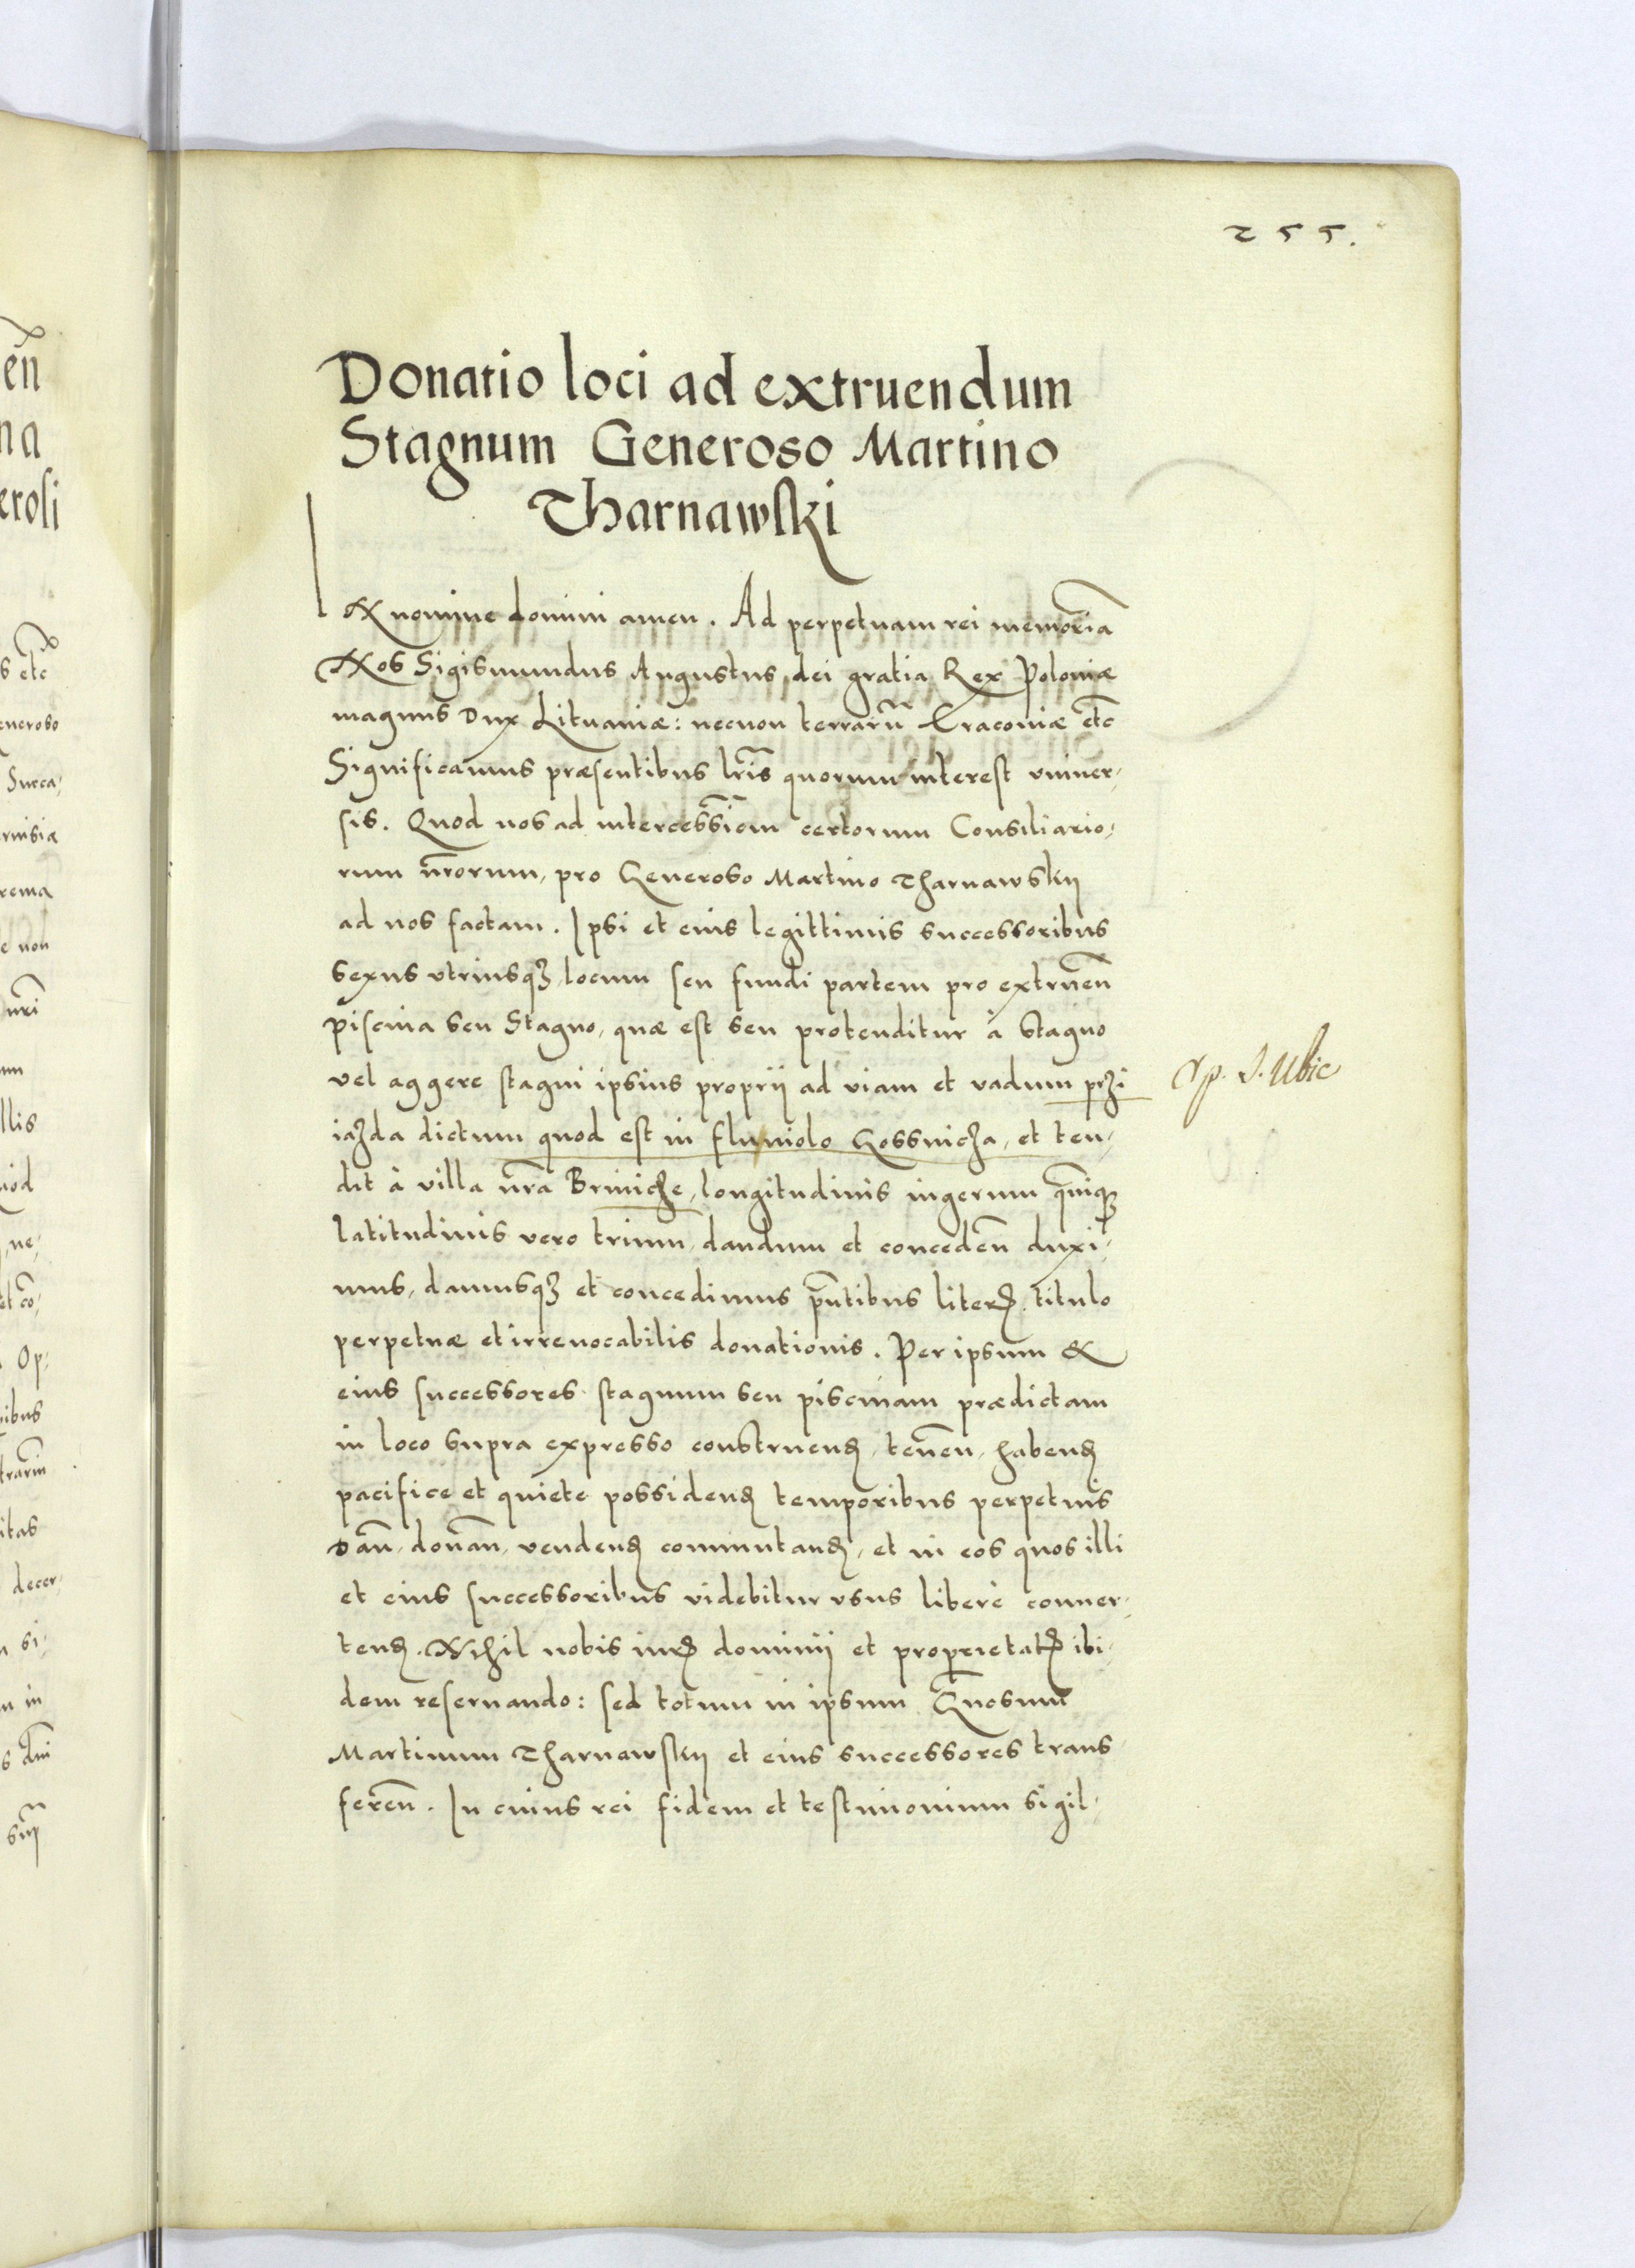 255.
Donatio loci ad extruendum
Stagnum Generoso Martino
Tharnawski
IN nomine domini amen. Ad perpetuam rei memoria͞
Nos Sigismundus Augustus dei gratia Rex Poloniæ
magnus Dux Lituaniæ: necnon terraru͞ Cracoviæ etc
Significamus præsentibus lr͞is quorum interest vniuer-
sis. Quod nos ad intercessio͞em certorum Consiliario-
rum nr͞orum, pro Generoso Martino Tharnawskij
ad nos factam. Ipsi et eius legittimis successoribus
sexus vtriusqꝫ locum seu fundi partem pro extrue͞n
piscina seu Stagno, quæ est seu protenditur à Stagno
vel aggere stagni ipsius proprij ad viam et vadum przi
iazda dictum quod est in fluuiolo Gossnicza, et ten-
dit à villa nr͞a Briniche, longitudinis iugerum qui͞nqꝫ
latitudinis vero trium, dandum et concede͞n duxi-
mus, damusqꝫ et concedimus pn͞tibus literꝭ. titulo
perpetuæ et irreuocabilis donationis. Per ipsum &
eius successores stagnum seu piscinam prædictam
in loco supra expresso construenꝺ, tene͞n, habenꝺ
pacifice et quiete possidenꝺ temporibus perpetuis
Da͞n, dona͞n, vendenꝺ commutanꝺ, et in eos quos illi
et eius successoribus videbitur vsus liberè conuer-
tenꝺ. Nihil nobis iurꝭ dominij et proprietatꝭ ibi-
dem reseruando: sed totum in ipsum Gn͞osum
Martinum Tharnawskij et eius successores trans-
fere͞n. In cuius rei fidem et testimonium sigil-